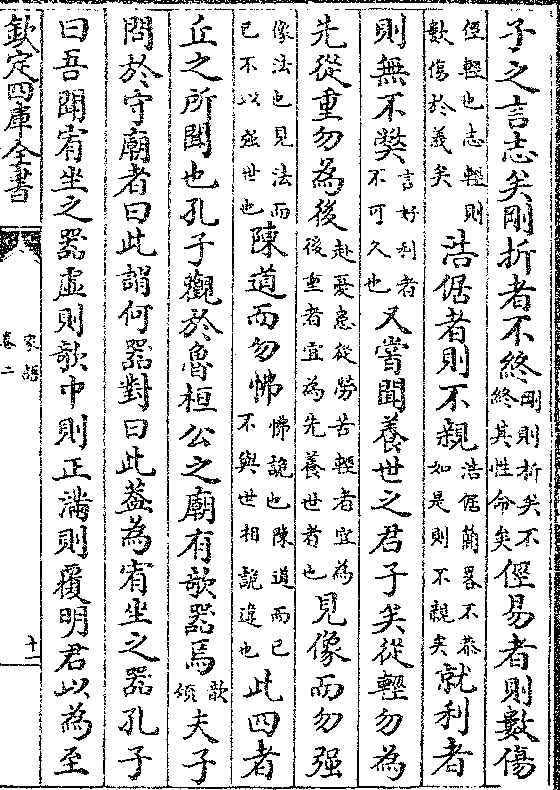 子之言志矣剛折者不終剛則折矣不終其性命矣徑易者則數傷
徑輕也志輕則數傷於義矣浩倨者則不親浩倨簡畧不恭如是則不親矣就利者
則無不獘言好利者不可久也又嘗聞養世之君子矣從輕勿為
先從重勿為後赴憂患從勞苦輕者宜為後重者宜為先養世者也見像而勿强
像法也見法而已不以强世也陳道而勿怫怫詭也陳道而已不與世相詭違也此四者
丘之所聞也孔子觀於魯桓公之廟有欹器焉欹傾夫子
問於守廟者曰此謂何器對曰此葢為宥坐之器孔子
曰吾聞宥坐之器虛則欹中則正滿則覆明君以為至
欽定四庫全書
家語
卷二
十一